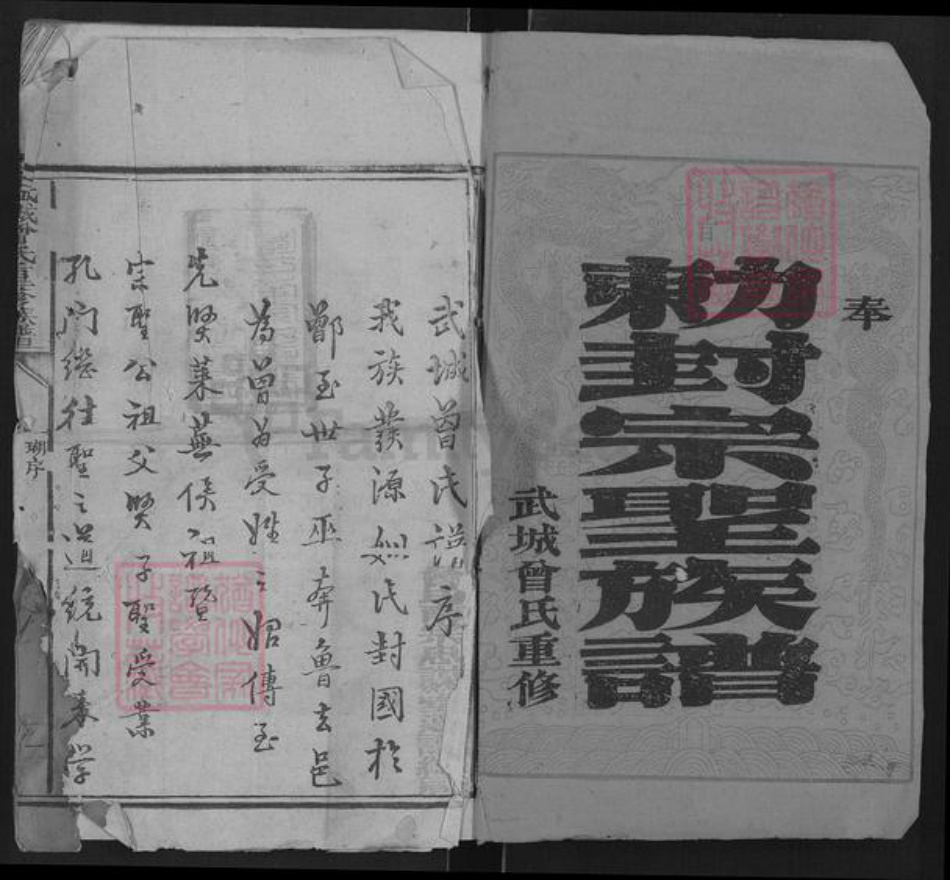 奉
勅封宗聖族譜
武城曾氏重修
武城曾氏譜序
我族發源姒氏封國於
鄫至世子巫奔魯去邑
為曾為受姓之始傳至
先賢萊蕪侯祖暨
宗聖公祖父賢子聖受業
孔門繼往聖之道統開來学
瑚序